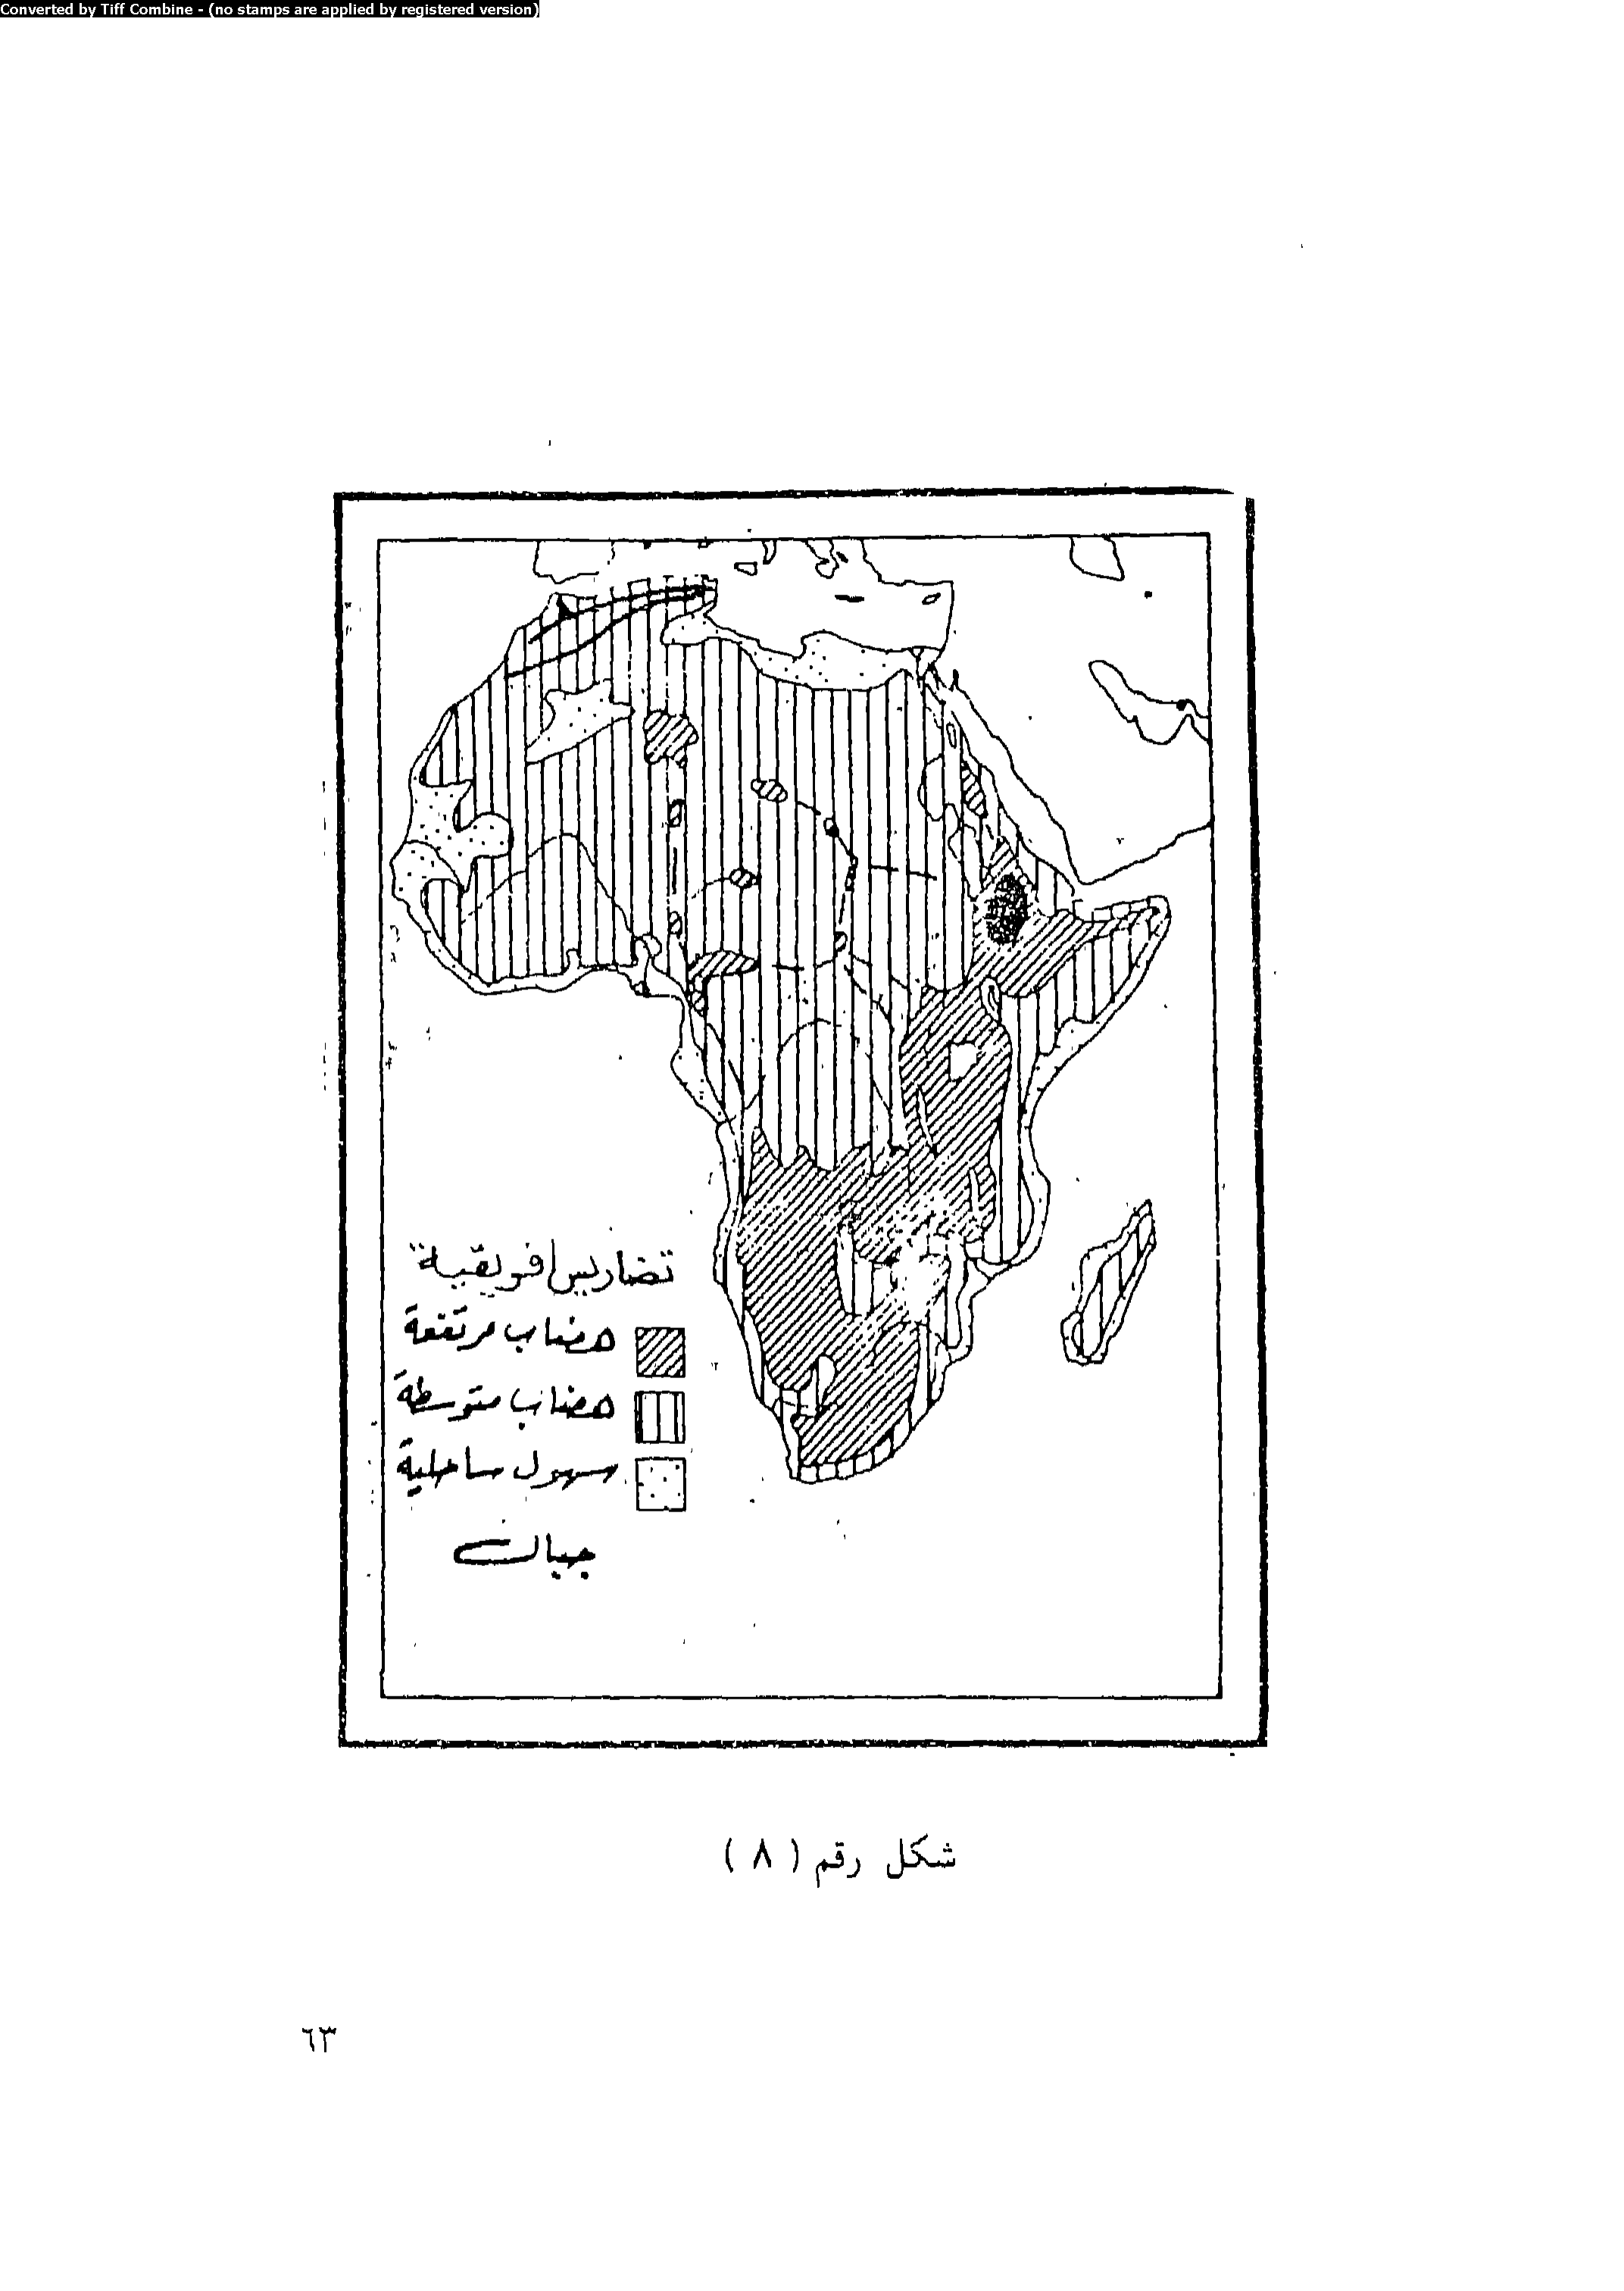 Converted by Tiff Combine - (no stamps are applied by registered version)
تضاريس افريقية
هضاب مرتفعة
هضاب متوسطة
سهول ساحلية
جبال
شكل رقم ( ٨ )
٦٣